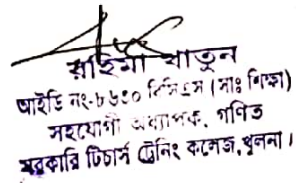 রহিমা খাতুন
আইডি নং-৮৬৫০ বিসিএস (সাঃ শিক্ষা)
সহযোগী অধ্যাপক, গণিত
সরকারি টিচার্স ট্রেনিং কলেজ, খুলনা।